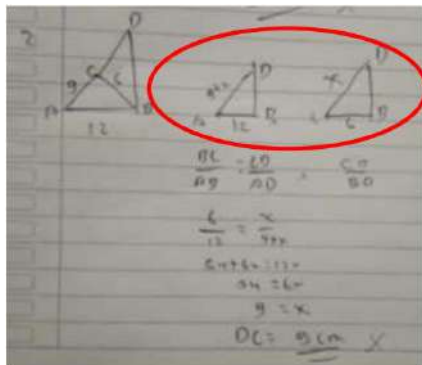 2
D
C
9 6
A B
12
D D
9+x x
A 12 B 6 B
BC/AB = CD/AD = CD/BD
6/12 = x/9+x
54+6x=12x
54=6x
9 = x
DC = 9cm X